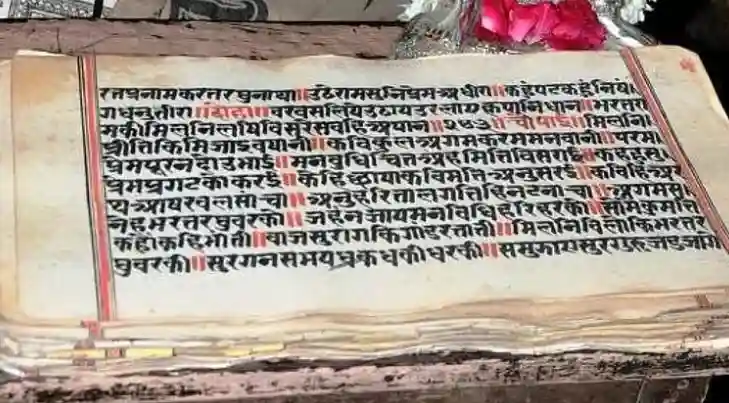 रतप्रनामकरतरघुनाथा॥उठेरामसुनिप्रेमअधीरा॥कहुंपटकहुंनिषं
गधनुतीरा॥दोहा॥बरबसलिये उठायउरलायकृपानिधान॥भरतरा
मकीमिलनिलषिविसरेसबहिअपान॥२४३॥चौपाई॥मिलनि
प्रीतिकिमिजाइबषानी॥कविकुलअगमकरममनबानी॥परम
प्रेमपूरनदोउभाई॥मनबुधिचितअहमितिविसराई॥कहहुसु
प्रेमप्रगटकोकरई॥केहिछायाकविमतिअनुसरई॥कविहिअर
थआषरबलसाचा॥अनुहरितालगतिहिनटनाचा॥अगमस
नेहभरतरघुबरको॥जहनजायमनविधिहरिहरको॥सोमैकुमति
कहौकेहिभाती॥बाजसुरागकिगाडरताती॥मिलनिबिलोकिभरतर
घुबरकी॥सुरगनसभयधकधकीधरकी॥समुझायेसुरगुरुजडजागे